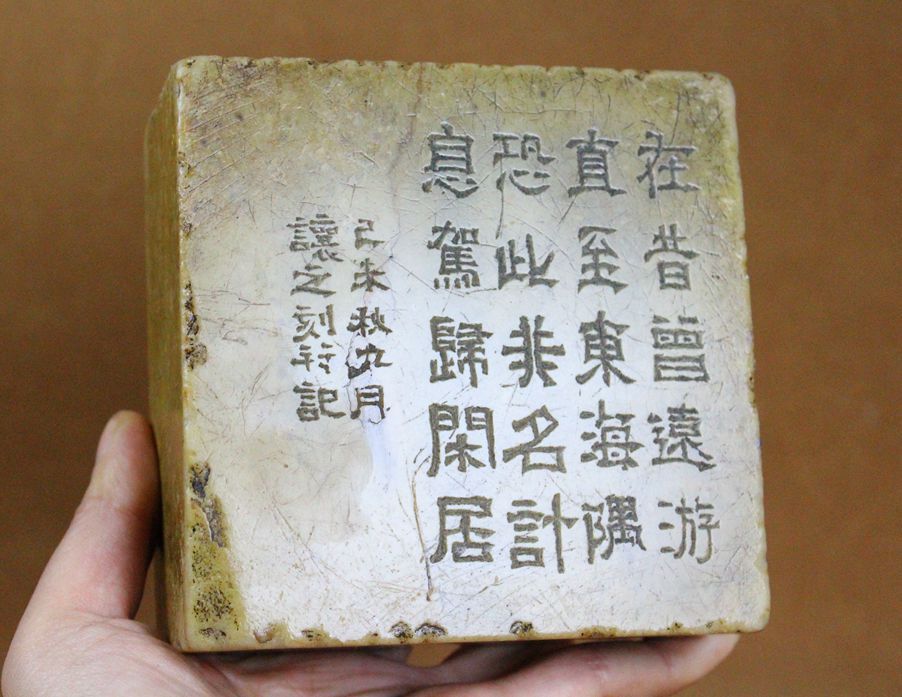 在昔曾遠游
直至東海隅
恐此非名計
息駕歸閑居
己未秋九月
讓之刻并記